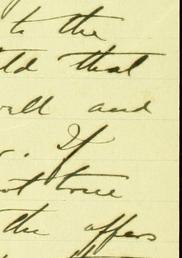 to the
ld that
well and
. If
ot true
the offers